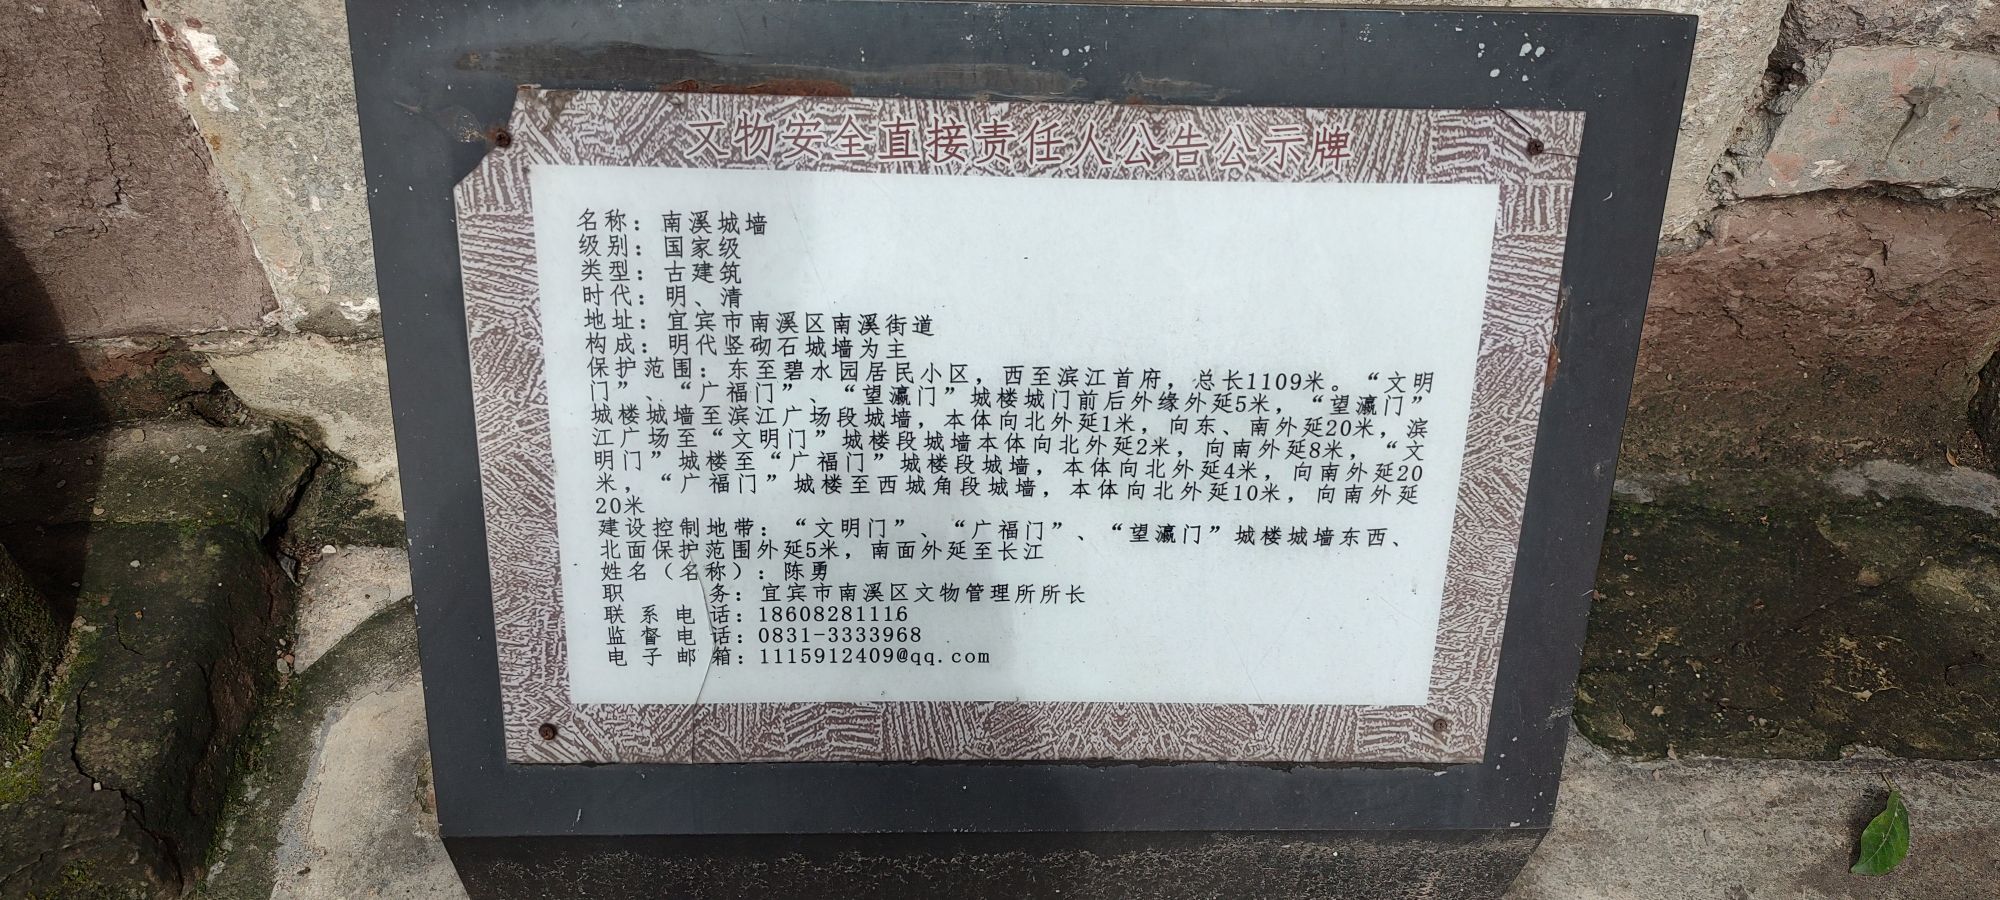 文物安全直接责任人公告公示牌
名称：南溪城墙
级别：国家级
类型：古建筑
时代：明、清
地址：宜宾市南溪区南溪街道
构成：明代竖砌石城墙为主
保护范围：东至碧水园居民小区，西至滨江首府，总长1109米。“文明
门”、“广福门”、“望瀛门”城楼城门前后外缘外延5米，“望瀛门”
城楼城墙至滨江广场段城墙，本体向北外延1米，向东、南外延20米，滨
江广场至“文明门”城楼段城墙本体向北外延2米，向南外延8米，“文
明门”城楼至“广福门”城楼段城墙，本体向北外延4米，向南外延20
米，“广福门”城楼至西城角段城墙，本体向北外延10米，向南外延
20米
建设控制地带：“文明门”、“广福门”、“望瀛门”城楼城墙东西、
北面保护范围外延5米，南面外延至长江
姓名（名称）：陈勇
职务：宜宾市南溪区文物管理所所长
联系电话：18608281116
监督电话：0831-3333968
电子邮箱：1115912409@qq.com